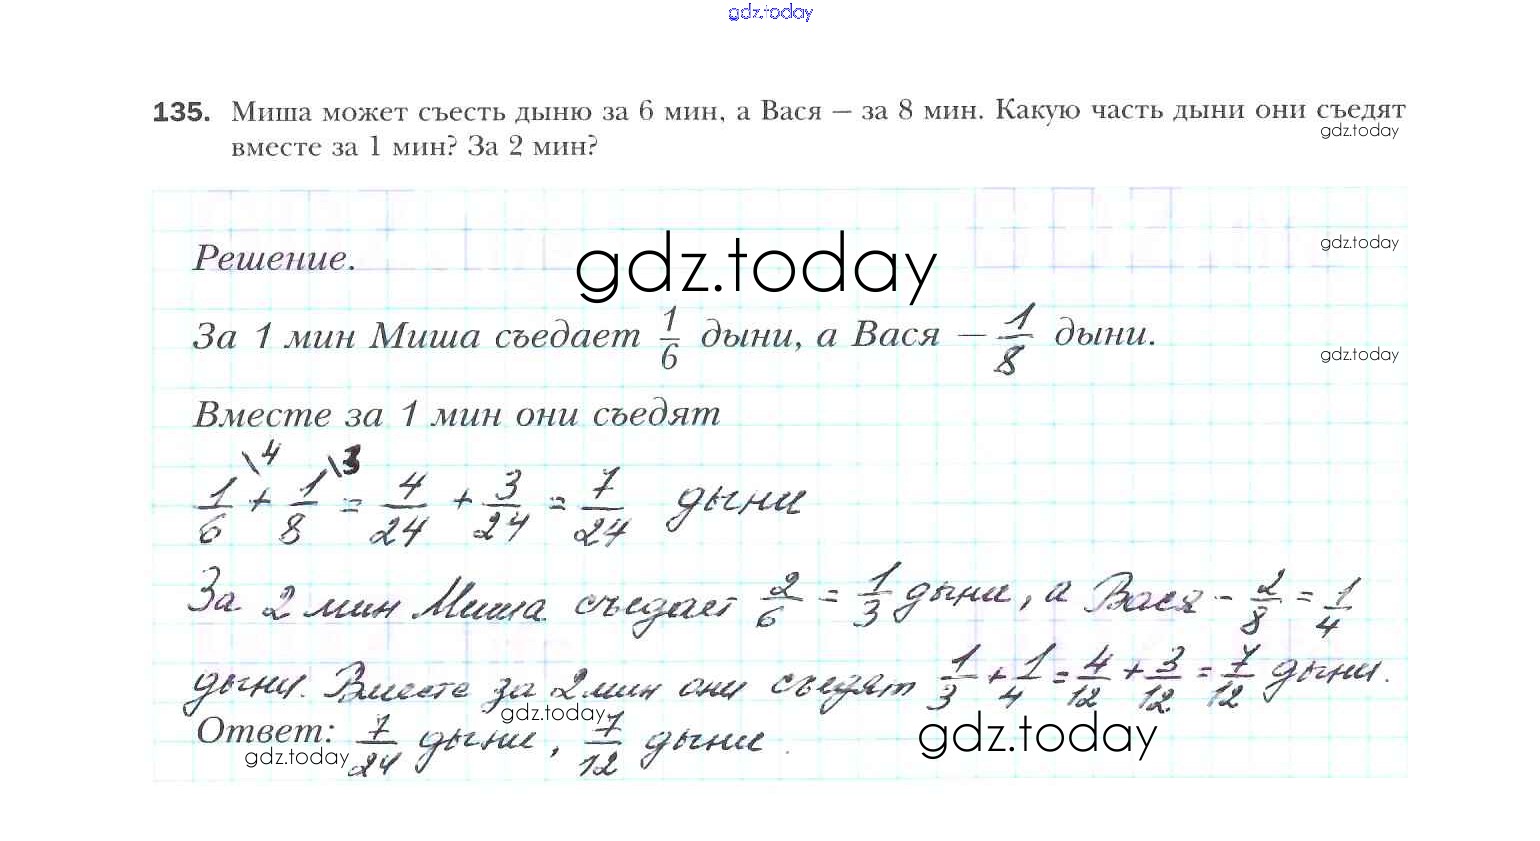 gdz.today
135. Миша может съесть дыню за 6 мин, а Вася — за 8 мин. Какую часть дыни они съедят
gdz.today
вместе за 1 мин? За 2 мин?
gdz.today
gdz.today
Решение.
За 1 мин Миша съедает 1/6 дыни, а Вася — 1/8 дыни.
gdz.today
Вместе за 1 мин они съедят
1/6 \4 + 1/8 \3 = 4/24 + 3/24 = 7/24 дыни
За 2 мин Миша съедает 2/6 = 1/3 дыни, а Вася - 2/8 = 1/4
дыни. Вместе за 2 мин они съедят 1/3 + 1/4 = 4/12 + 3/12 = 7/12 дыни.
gdz.today
Ответ: 7/24 дыни, 7/12 дыни.
gdz.today
gdz.today